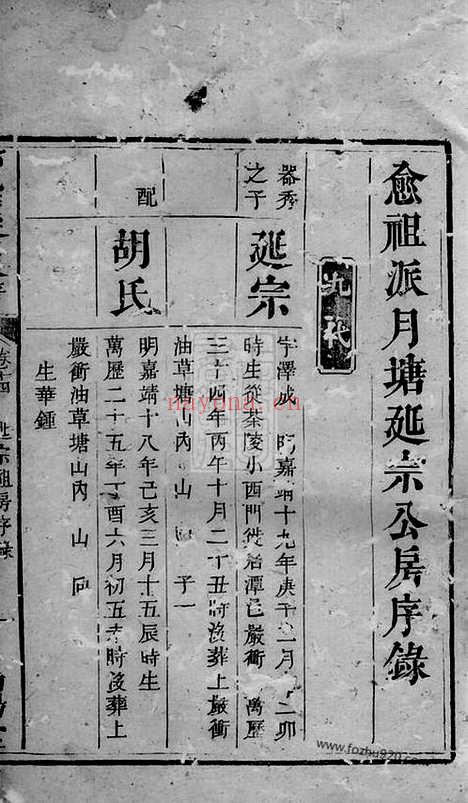 愈祖派月塘延宗公房序錄
九代
器秀
之子
延宗
字澤成 明嘉靖十九年庚子 月 二卯
時生從茶陵小西門徙居潭邑嚴衝 萬歷
三十四年丙午十月二十丑時沒葬上嚴衝
油草塘山內 山 向 子一
配
胡氏
明嘉靖十八年己亥三月十五辰時生
萬歷二十五年丁酉六月初五 時沒葬上
嚴衝油草塘山內 山 向
生華鍾
卷十四
宗祖房序錄
nayona.cn
www.fozhu920.com